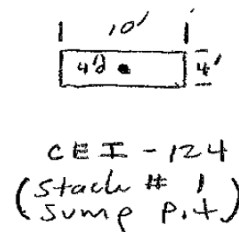 10'
4'
CEI-124
(Stack # 1
Sump pit)